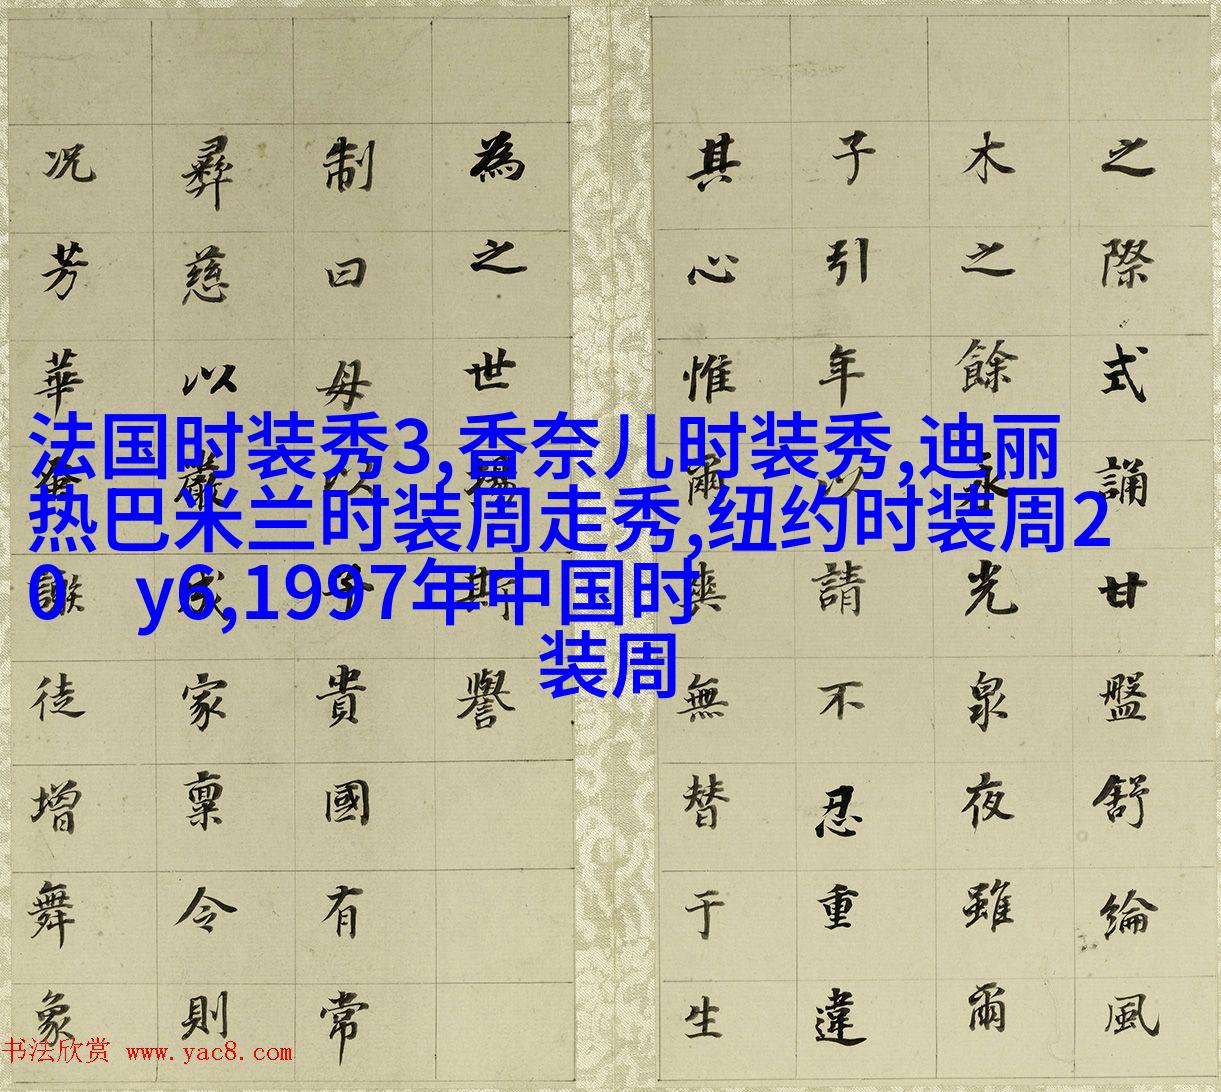 之際式誦甘盤舒綸風
木之餘永光泉夜雖爾
子引年以請不忍重違
其心惟爾無替于生
為之世斯譽
制曰母以子貴國有常
彝慈以嚴成家稟令則
况芳華蚤謝徒增舞象
法国时装秀3,香奈儿时装秀,迪丽
热巴米兰时装周走秀,纽约时装周2
0 y6,1997年中国时
装周
书法欣赏 www.yac8.com